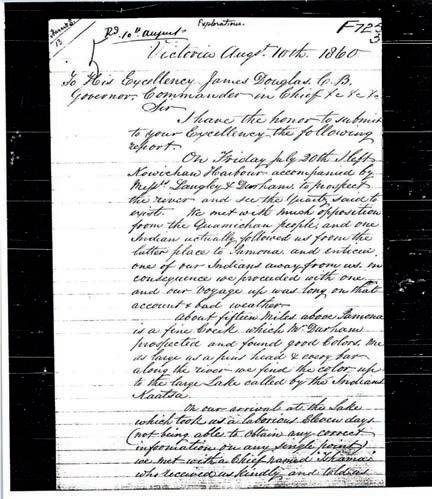 Explorations.
Rd. 10th August
F 722
Victoria Augt. 10th. 1860
To His Excellency James Douglas, C.B.
Governor, Commander in Chief &c &c &c
Sir
I have the honor to submit
to your Excellency the following
report.
On Friday July 20th I left
Kowichan Harbour accompanied by
Messrs. Langley & Durham, to prospect
the river and see the Quartz said to
exist. We met with much opposition
from the Quamichan people, and one
Indian actually followed us from the
latter place to Samona and enticed
one of our Indians away from us. in
consequence we proceeded with one
and our voyage up was long on that
account & bad weather
About fifteen Miles above Samona
is a fine Creek which Mr. Durham
prospected and found good Colors. Me
as large as a pins head & every bar
along the river we find the color up
to the large Lake called by the Indians
Kaatsa.
On our arrival at the Lake
which took us a laborious Eleven days
(not being able to obtain any correct
information on any single point)
we met with a Chief named
who received us kindly and told us